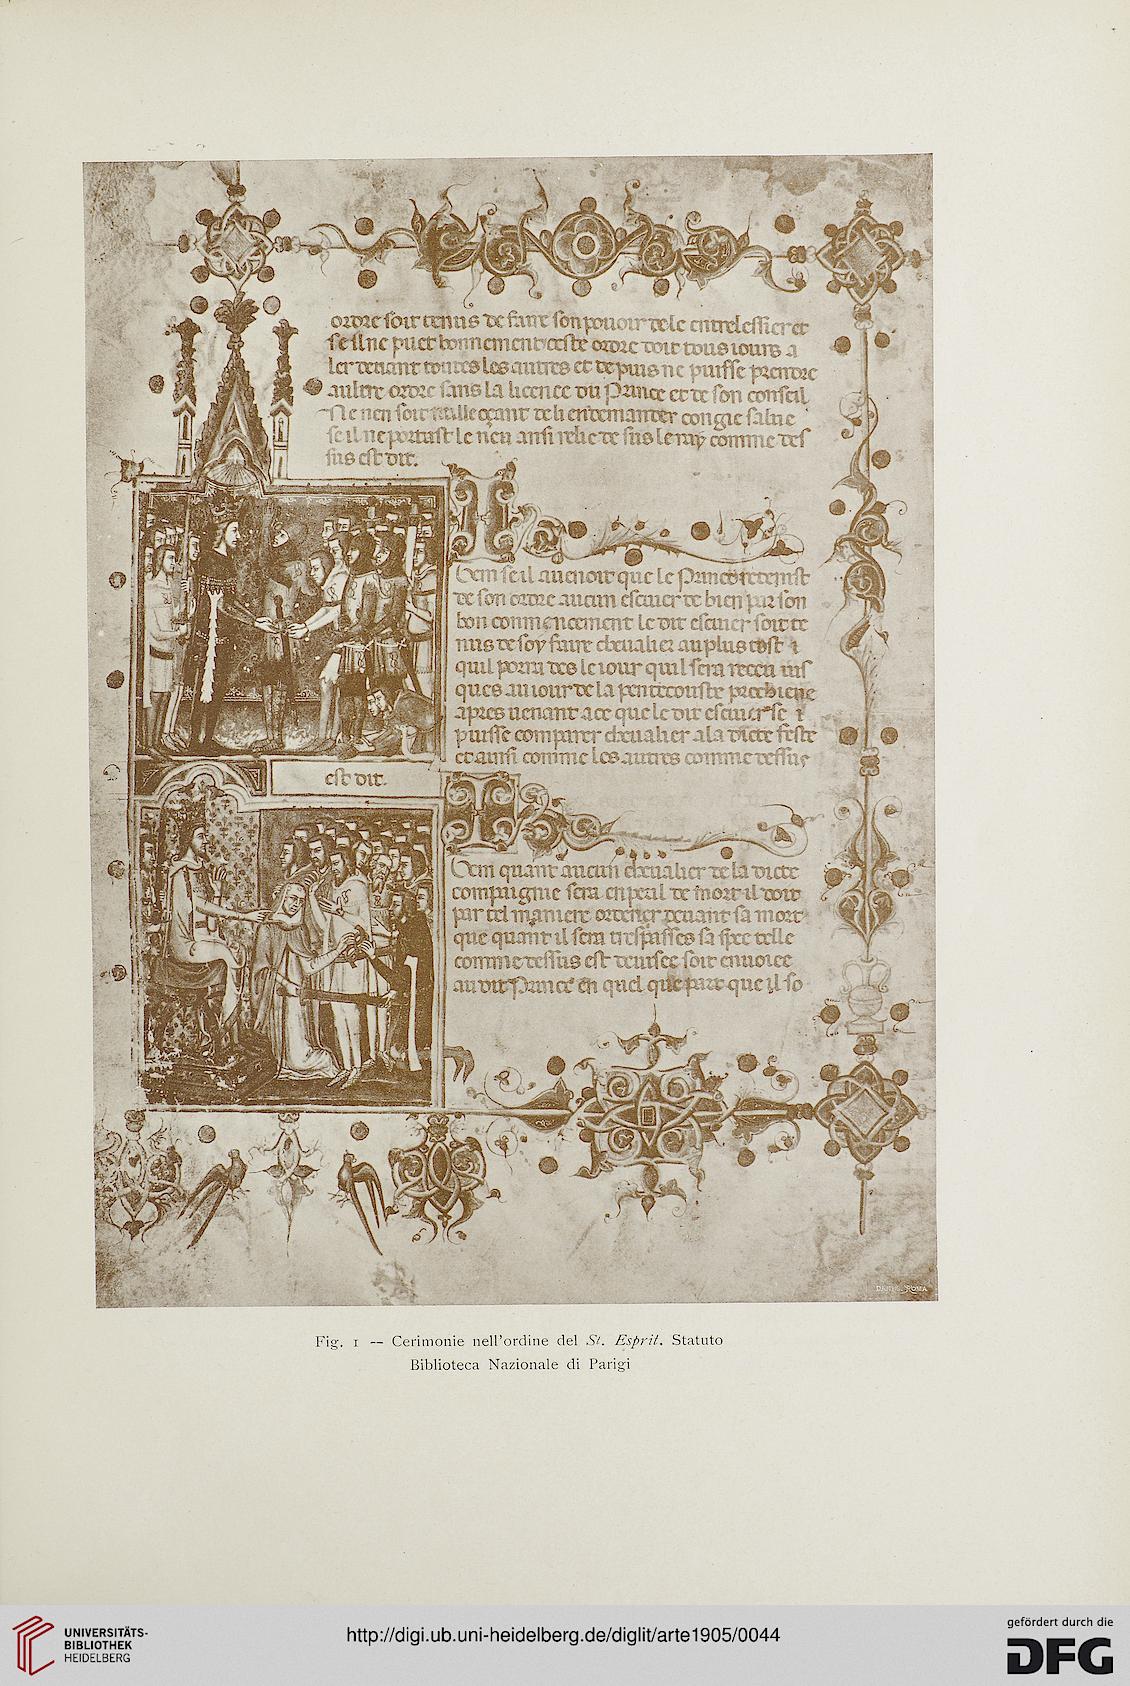 ordre soit tenus de faire son pouoir de le entrelessier et
se il ne puet bonnement ceste ordre doit tous iours a
ler deuant toutes les autres et depuis ne puisse prendre
aultre ordre sans la licence du Prince et de son conseil
se il ne portast le neu ansi relie de sus le ray comme des
sus est dit.
Item se il auenoit que le Prince retenist
de son ordre aucun escuier de bien par son
bon commencement le dit escuier soit te
nus de soy faire cheualier au plus tost
quil porra des le iour quil sera receu ius
ques au iour de la pentecouste
apres uenant a ce que le dit escuier se
puisse comparer cheualier a la dicte feste
et aussi comme les autres comme dessus
est dit.
Item quant aucun cheualier de la dicte
compaignie sera en peril de mort il doit
par tel maniere ordener deuant sa mort
que quant il sera trespasses sa spee telle
comme dessus est deuisee soit enuoiee
au dit Prince en quel que part que il so
DANESI ROMA
Fig. 1 — Cerimonie nell'ordine del St. Esprit. Statuto
Biblioteca Nazionale di Parigi
UNIVERSITÄTS-
BIBLIOTHEK
HEIDELBERG
http://digi.ub.uni-heidelberg.de/diglit/arte1905/0044
gefördert durch die
DFG